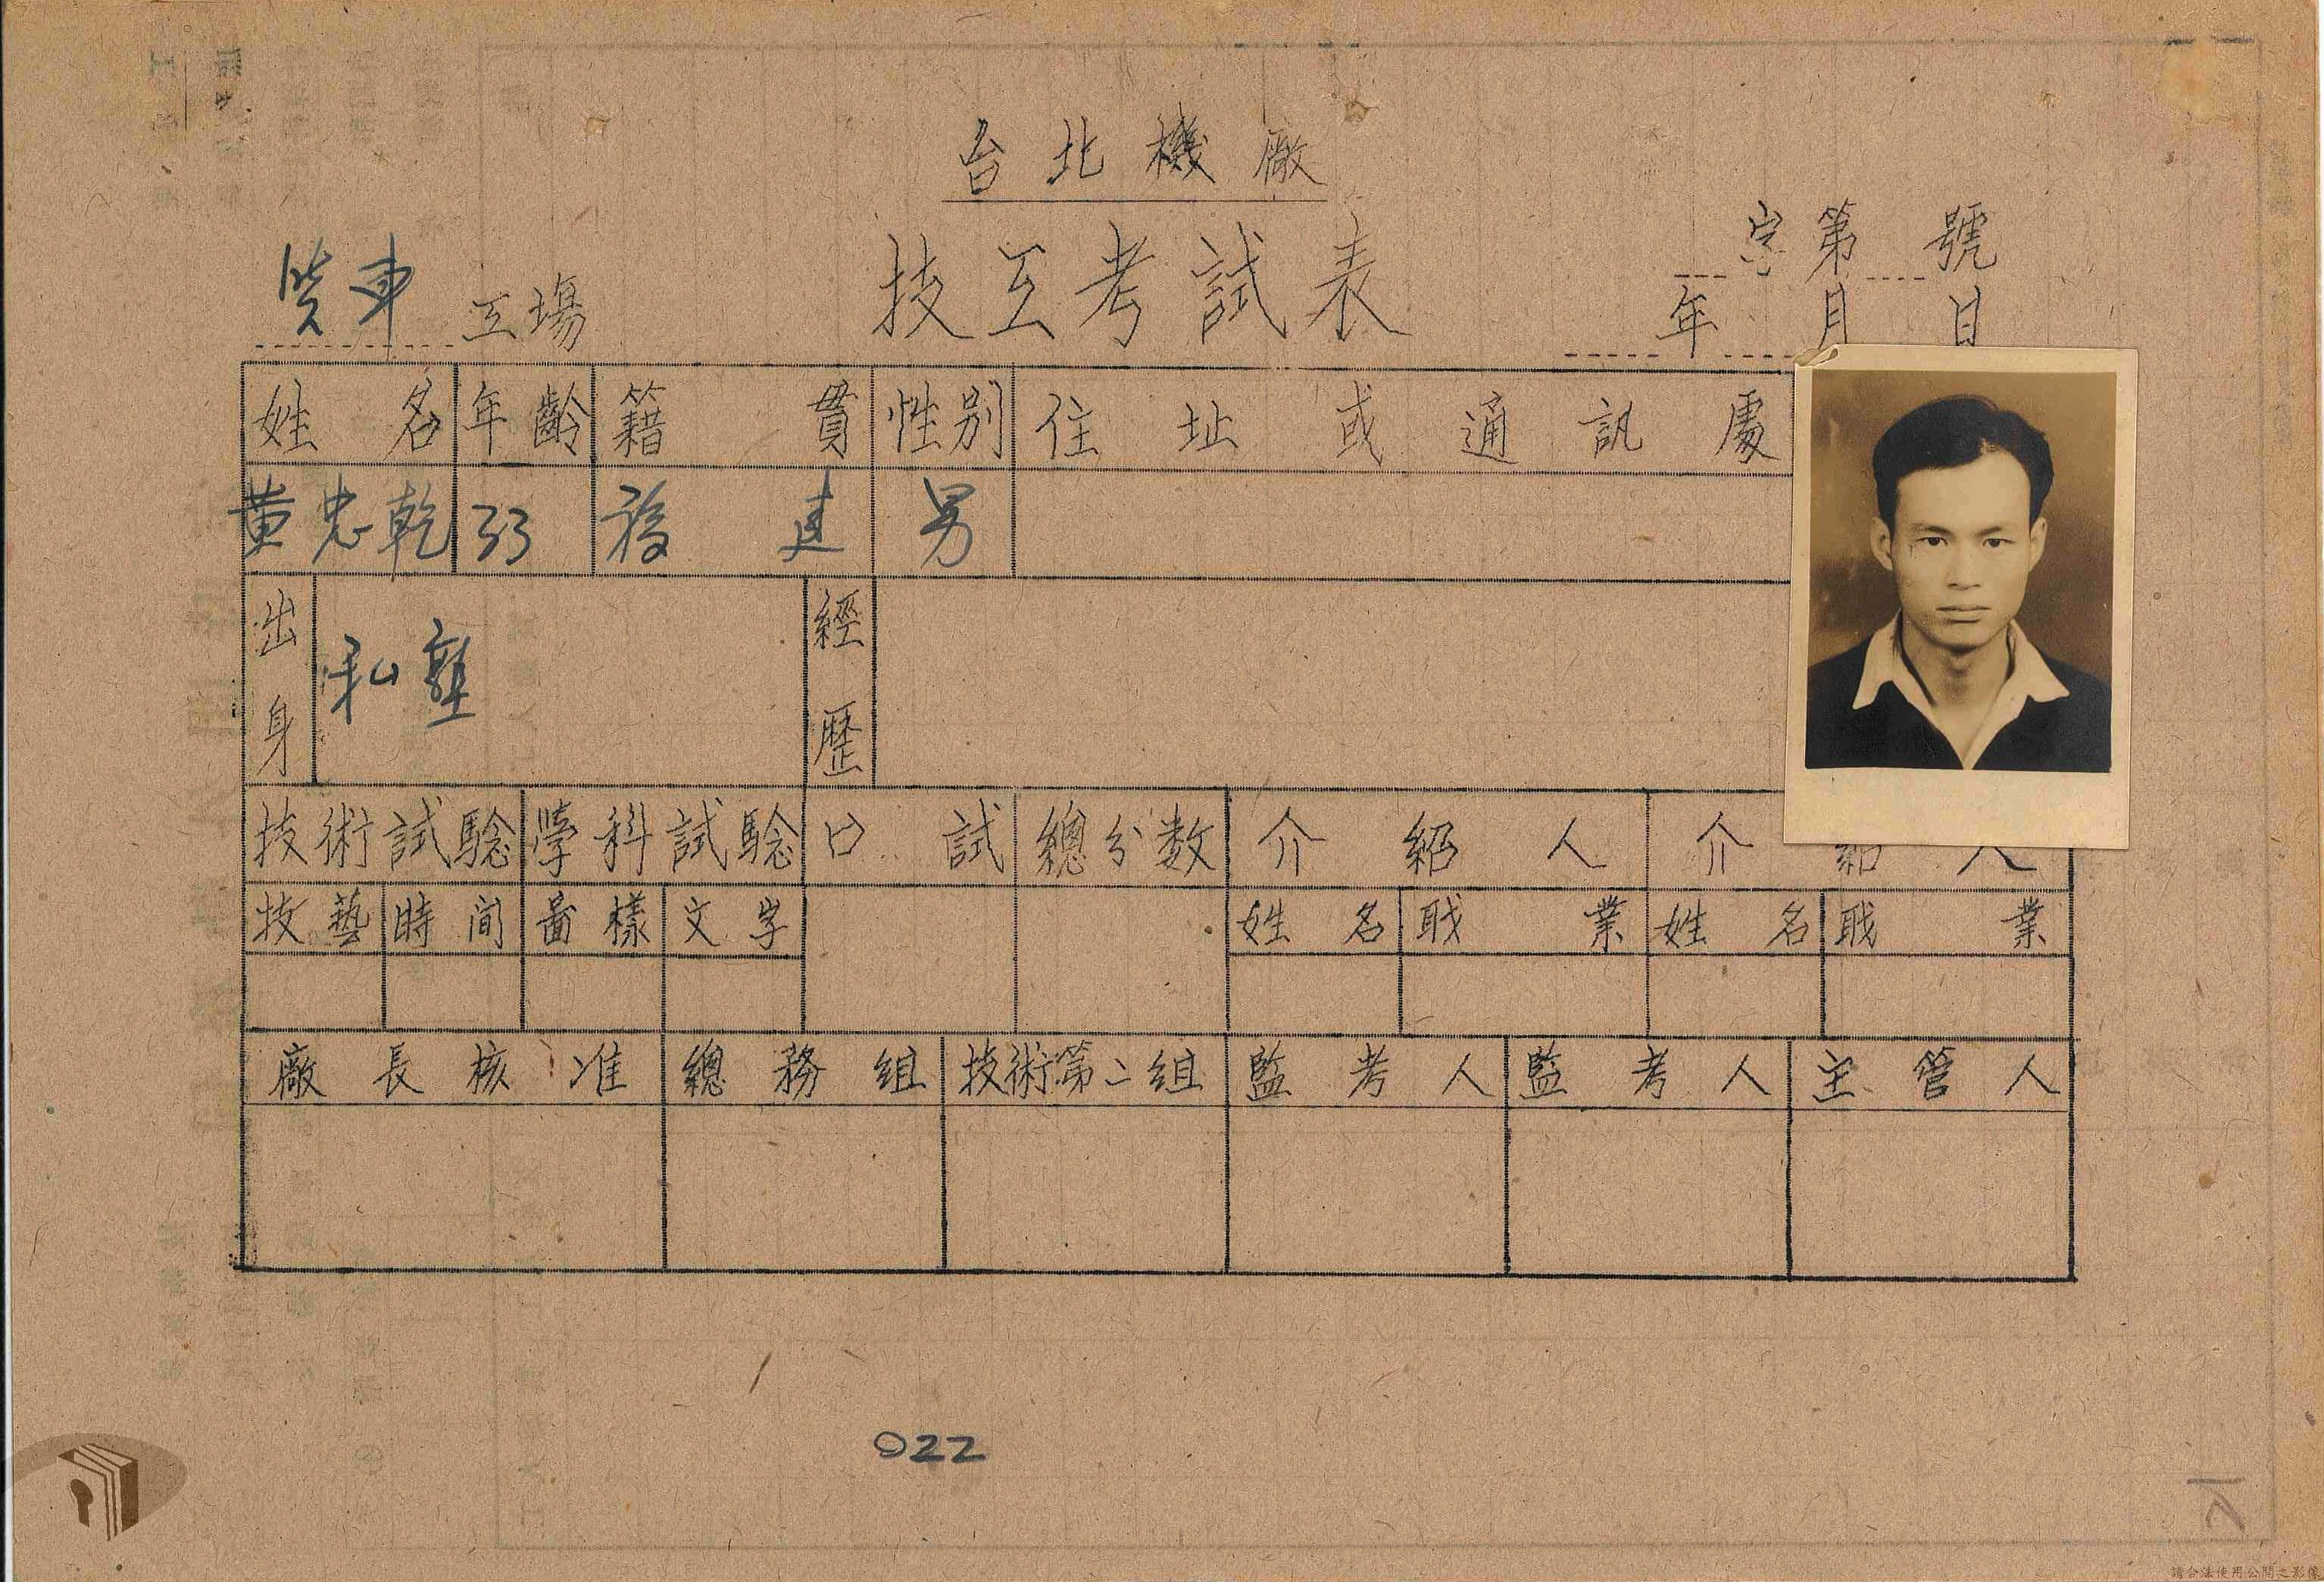 台北機廠
字第 號
技工考試表
貨車 工場
年 月 日
姓名 年齡 籍貫 性別 住址或通訊處
黃忠乾 33 福建 男
出身 私塾 經歷
技術試驗 學科試驗 口試 總分数 介紹人 介紹人
技藝 時间 圖樣 文字 姓名 职業 姓名 职業
廠長核准 總務組 技術第二組 監考人 監考人 主管人
022
請合法使用公開之影像